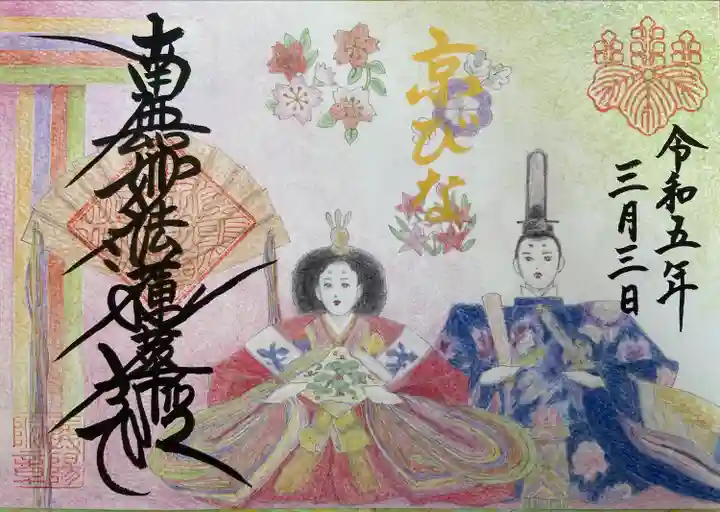 令和五年
三月三日
京びな
南無妙法蓮華経